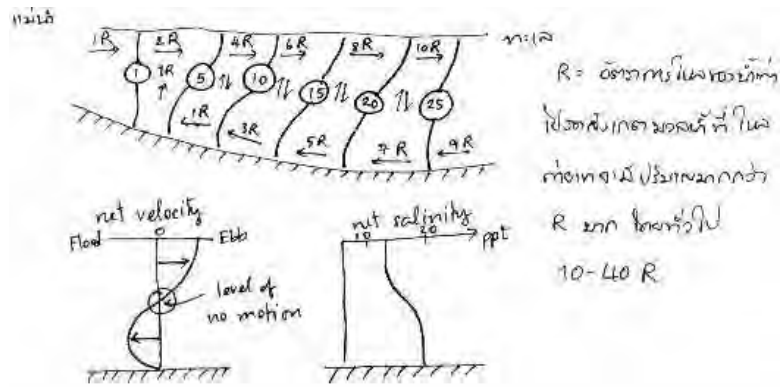 แม่น้ำ
1R 2R 4R 6R 8R 10R ทะเล
1 2R 5 10 15 20 25
1R 3R 5R 7R 9R
R = อัตราการไหลของน้ำท่า
โปรดสังเกตมวลน้ำที่ไหล
ถ่ายเทจะมีปริมาณมากกว่า
R มาก โดยทั่วไป
10-40 R
net velocity
Flood 0 Ebb
level of
no motion
net salinity
10 20 ppt